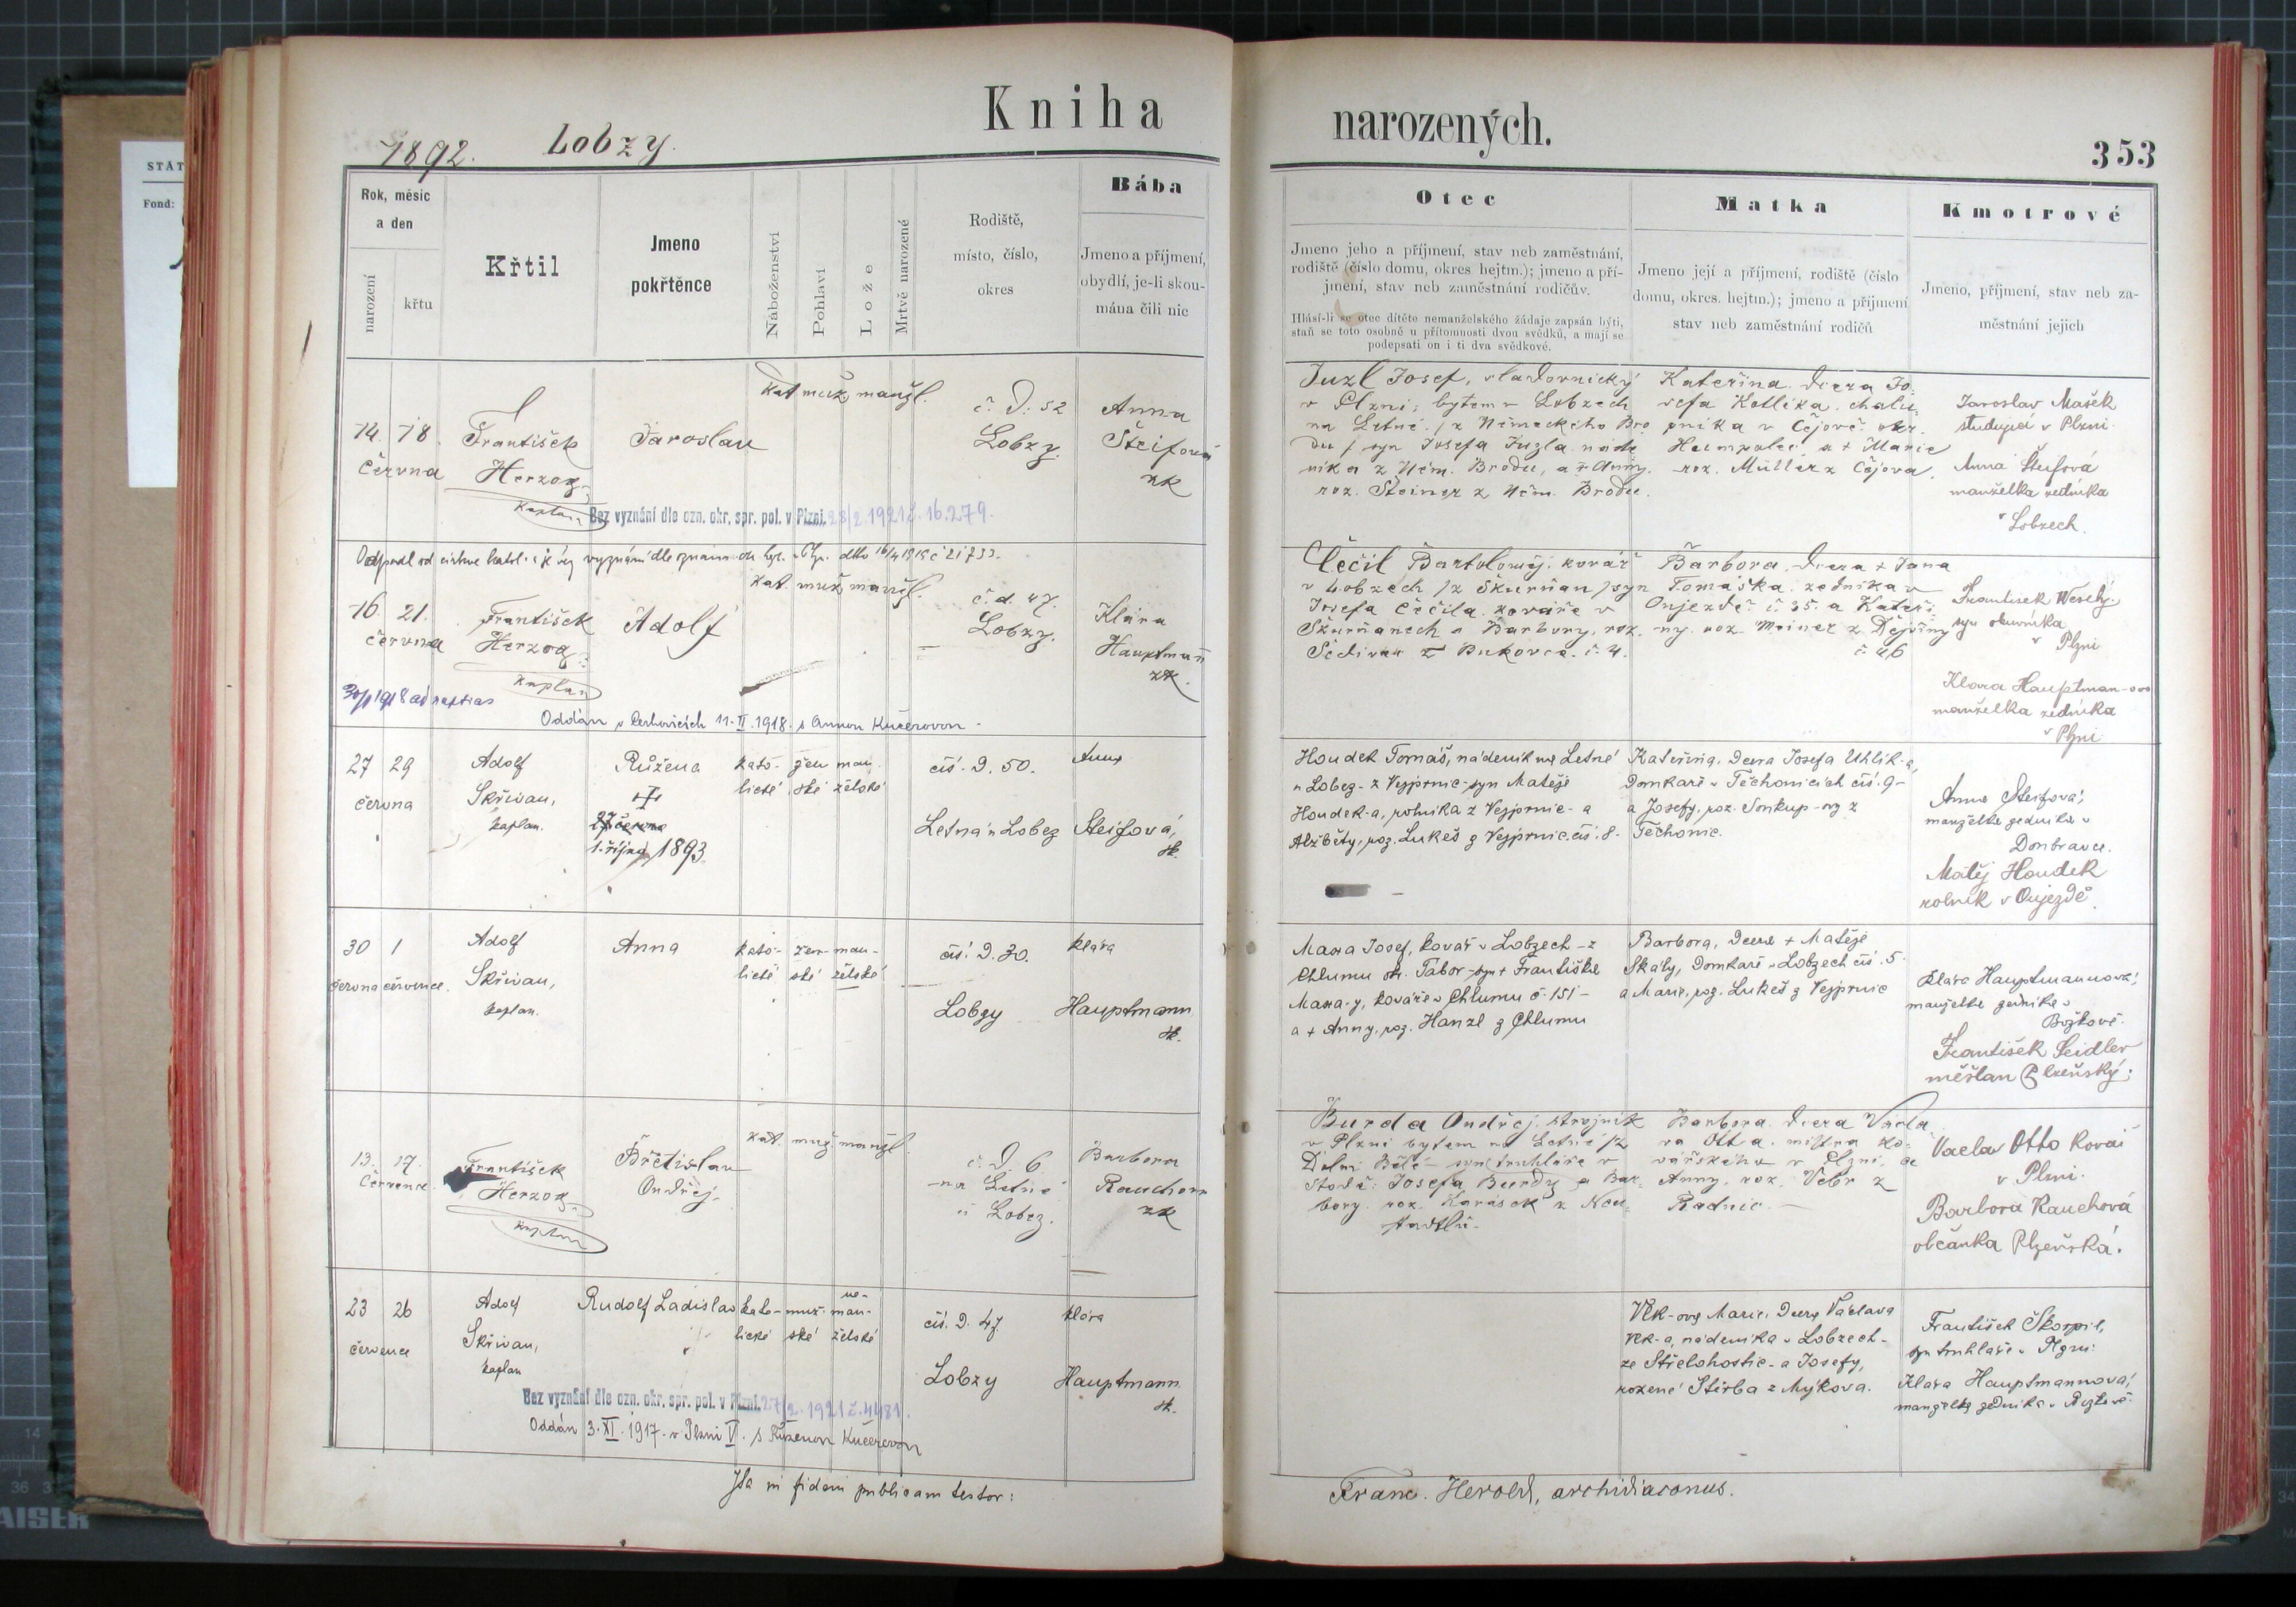 STÁT
Fond:
1892. Lobzy.
Kniha narozených.
353
Rok, měsíc a den
narození
křtu
Křtil
Jmeno pokřtěnce
Náboženství
Pohlaví
Lože
Mrtvě narozené
Rodiště, místo, číslo, okres
Bába
Jmeno a příjmení, obydlí, je-li skou-
mána čili nic
Otec
Jmeno jeho a příjmení, stav neb zaměstnání,
rodiště (číslo domu, okres hejtm.); jmeno a pří-
jmení, stav neb zaměstnání rodičův.
Hlásí-li se otec dítěte nemanželského žádaje zapsán býti,
staň se toto osobně u přítomnosti dvou svědků, a mají se
podepsati on i ti dva svědkové.
Matka
Jmeno její a příjmení, rodiště (číslo
domu, okres. hejtm.); jmeno a příjmení
stav neb zaměstnání rodičů
Kmotrové
Jmeno, příjmení, stav neb za-
městnání jejich
14. 18.
června
František
Herzog
kaplan
Jaroslav
kat. muž. manžl.
č. d. 52
Lobzy.
Anna
Šteifová
zk
Josef,
v Plzni, bytem v Lobzech
na Letné /z Německého Bro
du / syn Josefa
níka z Něm. Brodu, a Anny
roz. Šteiner z Něm. Brodu.
Kateřina. dcera Jo-
sefa Kotlíka. chalu-
pníka v Čejově okr.
Humpolec a + Marie
roz. Müller z Čejova.
Jaroslav Mašek
v Plzni.
Anna Šteifová
manželka zedníka
v Lobzech.
Bez vyznání dle ozn. okr. spr. pol. v Plzni. 28/2 1921 č. 16.279.
Odpadl od církve katol.
16. 21.
června
František
Herzog
kaplan
Adolf
kat. muž. manžl.
č. d. 47.
Lobzy.
Klára
Hauptman
zk.
Čečil Bartoloměj. kovář
v Lobzech /z Škurňan/ syn
Josefa Čečila. kováře v
Škurňanech a Barbory, roz.
z Bukovce. č. 4.
Barbora. dcera + Jana
Tomáška. zedníka v
Oujezdě č. 35. a Kateři-
ny. roz. Meiner z Dějšiny
č. 46
František Weselý.
syn obuvníka
v Plzni
Klara Hauptman-ova
manželka zedníka
v Plzni
30/1 1918 ad nuptias
Oddán v 11. II. 1918. s Annou Kučerovou -
27 29
června
Adolf
Skřivan,
kaplan.
Růžena
27 června
1. října 1893
kato- žen man-
lické ské želské
čís. d. 50.
Letná u Lobez
Anna
Steifová,
zk.
Houdek Tomáš, nádeník na Letné
u Lobez - z Vejprnic - syn Matěje
Houdek-a, rolníka z Vejprnic - a
Alžběty, roz. Lukeš z Vejprnic. čís. 8.
Kateřina, dcera Josefa Uhlík-a,
domkaře v Těchonicích čís. 9 -
a Josefy, roz. Soukup-ovy z
Těchonic.
Anna Steifová,
manželka zedníka v
Doubravce.
Matěj Houdek
rolník v Oujezdě.
30 1
června července.
Adolf
Skřivan,
kaplan.
Anna
kato- žen- man-
lické ské želské
čís. d. 30.
Lobzy
Klára
Hauptmann
zk.
Josef, kovář v Lobzech - z
Chlumu okr. Tabor - syn + Františka
kováře v Chlumu č. 151 -
a + Anny, roz. Hanzl z Chlumu
Barbora, dcera + Matěje
Skály, domkaře v Lobzech čís. 5.
a Marie, roz. Lukeš z Vejprnic
Klára Hauptmannová,
manželka zedníka v
Božkově.
František Seidler
měšťan Plzeňský;
13. 17.
července.
František
Herzog
kaplan
Břetislav
Ondřej.
kat. muž. manžl.
č. d. 6.
na Letné
u Lobez.
Barbora
Rauchova
zk
Burda Ondřej. strojník
v Plzni bytem na Letné /z
Dolní Bělé - syn truhláře v
Josefa Burdy a Bar-
bory. roz. Karásek z Neu-
Barbora. dcera Václa-
va Otta. mistra ko-
vářského v Plzni, a
Anny. roz. Vebr z
Radnic. —
Vaclav Otto kovář
v Plzni.
Barbora Rauchová
občanka Plzeňská.
23 26
července
Adolf
Skřivan,
kaplan
Rudolf Ladislav
kato- muž- ne-
man-
lické ské želské
čís. d. 47.
Lobzy
Klára
Hauptmann
zk.
Vlk-ova Marie, dcera Václava
Vlk-a, nádeníka v Lobzech -
ze Střelohostic - a Josefy,
rozené Štěrba z Mýkova.
František Škorpil,
syn truhláře v Plzni:
Klára Hauptmannová,
manželka zedníka v Božkově.
Bez vyznání dle ozn. okr. spr. pol. v Plzni. 27/2. 1921 č. 4481.
Oddán 3. XI. 1917. v Plzni V. s Růženou Kučerovou
Ita in fidem publicam testor:
Franc. Herold, archidiaconus.